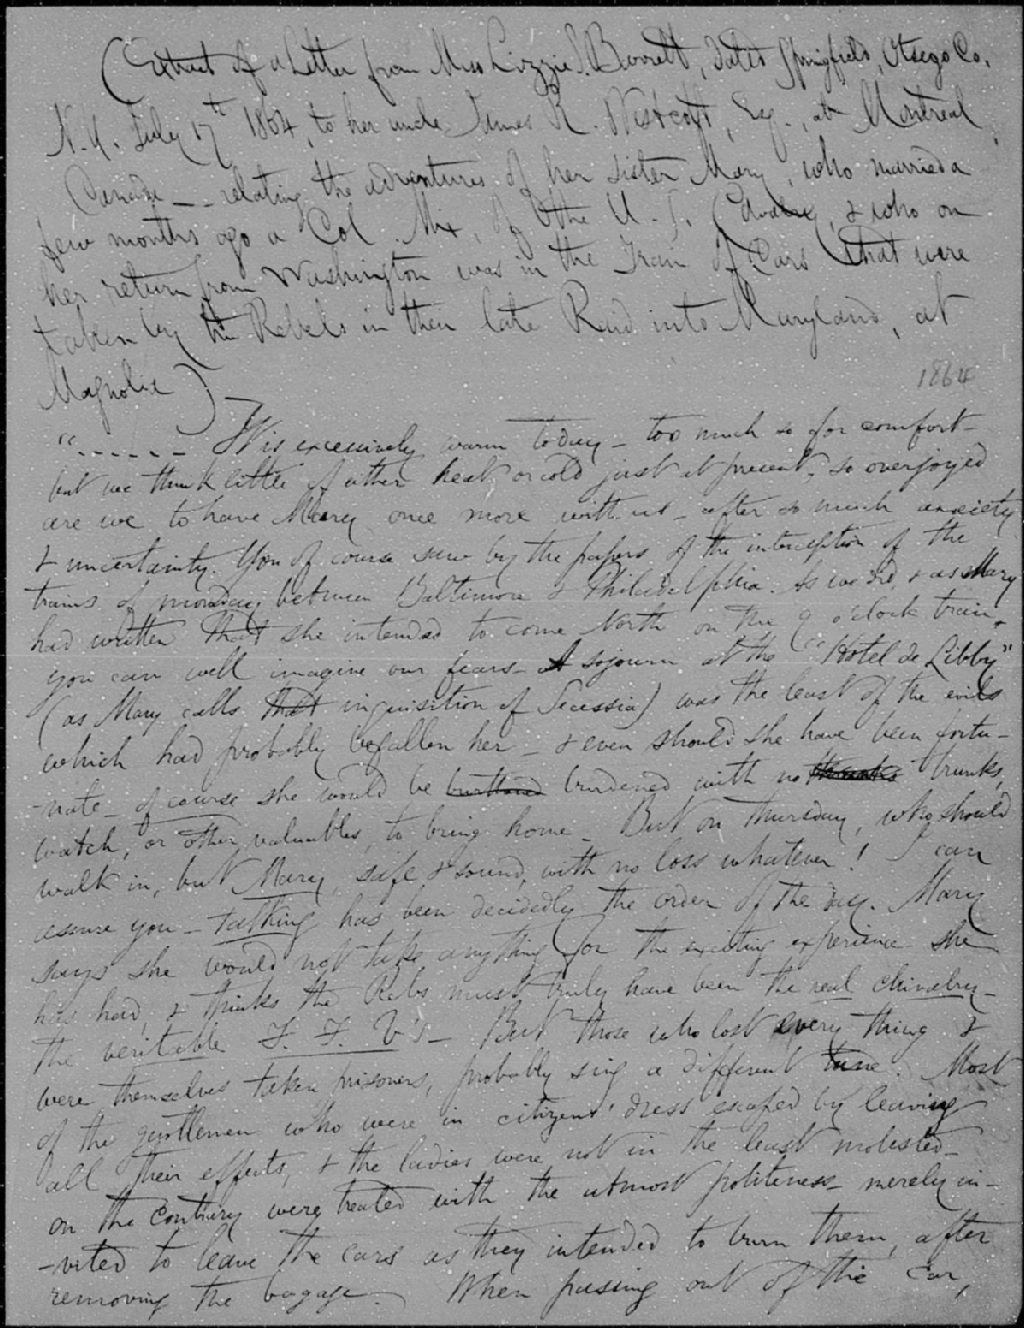 (Extract of a Letter from Miss Lizzie S. Barrett, dated Springfield, Otsego Co.
N.Y. July 17th 1864, to her uncle James R. Westcott, Esq., at Montreal,
Canada -- relating the adventures of her sister Mary, who married a
few months ago a Col. Mix, of the U.S. Cavalry, & who on
her return from Washington was in the Train of Cars that were
taken by the Rebels in their late Raid into Maryland, at
Magnolia)
1864
"...... It is excessively warm today - too much so for comfort -
but we think little of either heat or cold just at present - so overjoyed
are we to have Mary once more with us - after so much anxiety
& uncertainty. You of course saw by the papers of the interception of the
trains of monday between Baltimore & Philadelphia. So we did, & as Mary
had written that she intended to come North on the 9 o'clock train,
you can well imagine our fears - A sojourn at the "Hotel de Libby"
(as Mary calls that inquisition of Secessia) was the least of the evils
which had probably befallen her - & even should she have been fortu-
-nate - of course she would be burdened with no trunks,
watch, or other valuables, to bring home - But on Thursday, who should
walk in, but Mary, safe & sound, with no loss whatever! I can
assure you - talking has been decidedly the order of the day. Mary
says she would not take anything for the exciting experience she
has had, & thinks the Rebs must truly have been the real chivalry -
the veritable F. F. V's - But those who lost every thing &
were themselves taken prisoners, probably sing a different tune. Most
of the gentlemen who were in citizens' dress escaped by leaving
all their effects, & the ladies were not in the least molested -
on the contrary were treated with the utmost politeness - merely in-
-vited to leave the cars as they intended to burn them, after
removing the bagage - When passing out of the car,